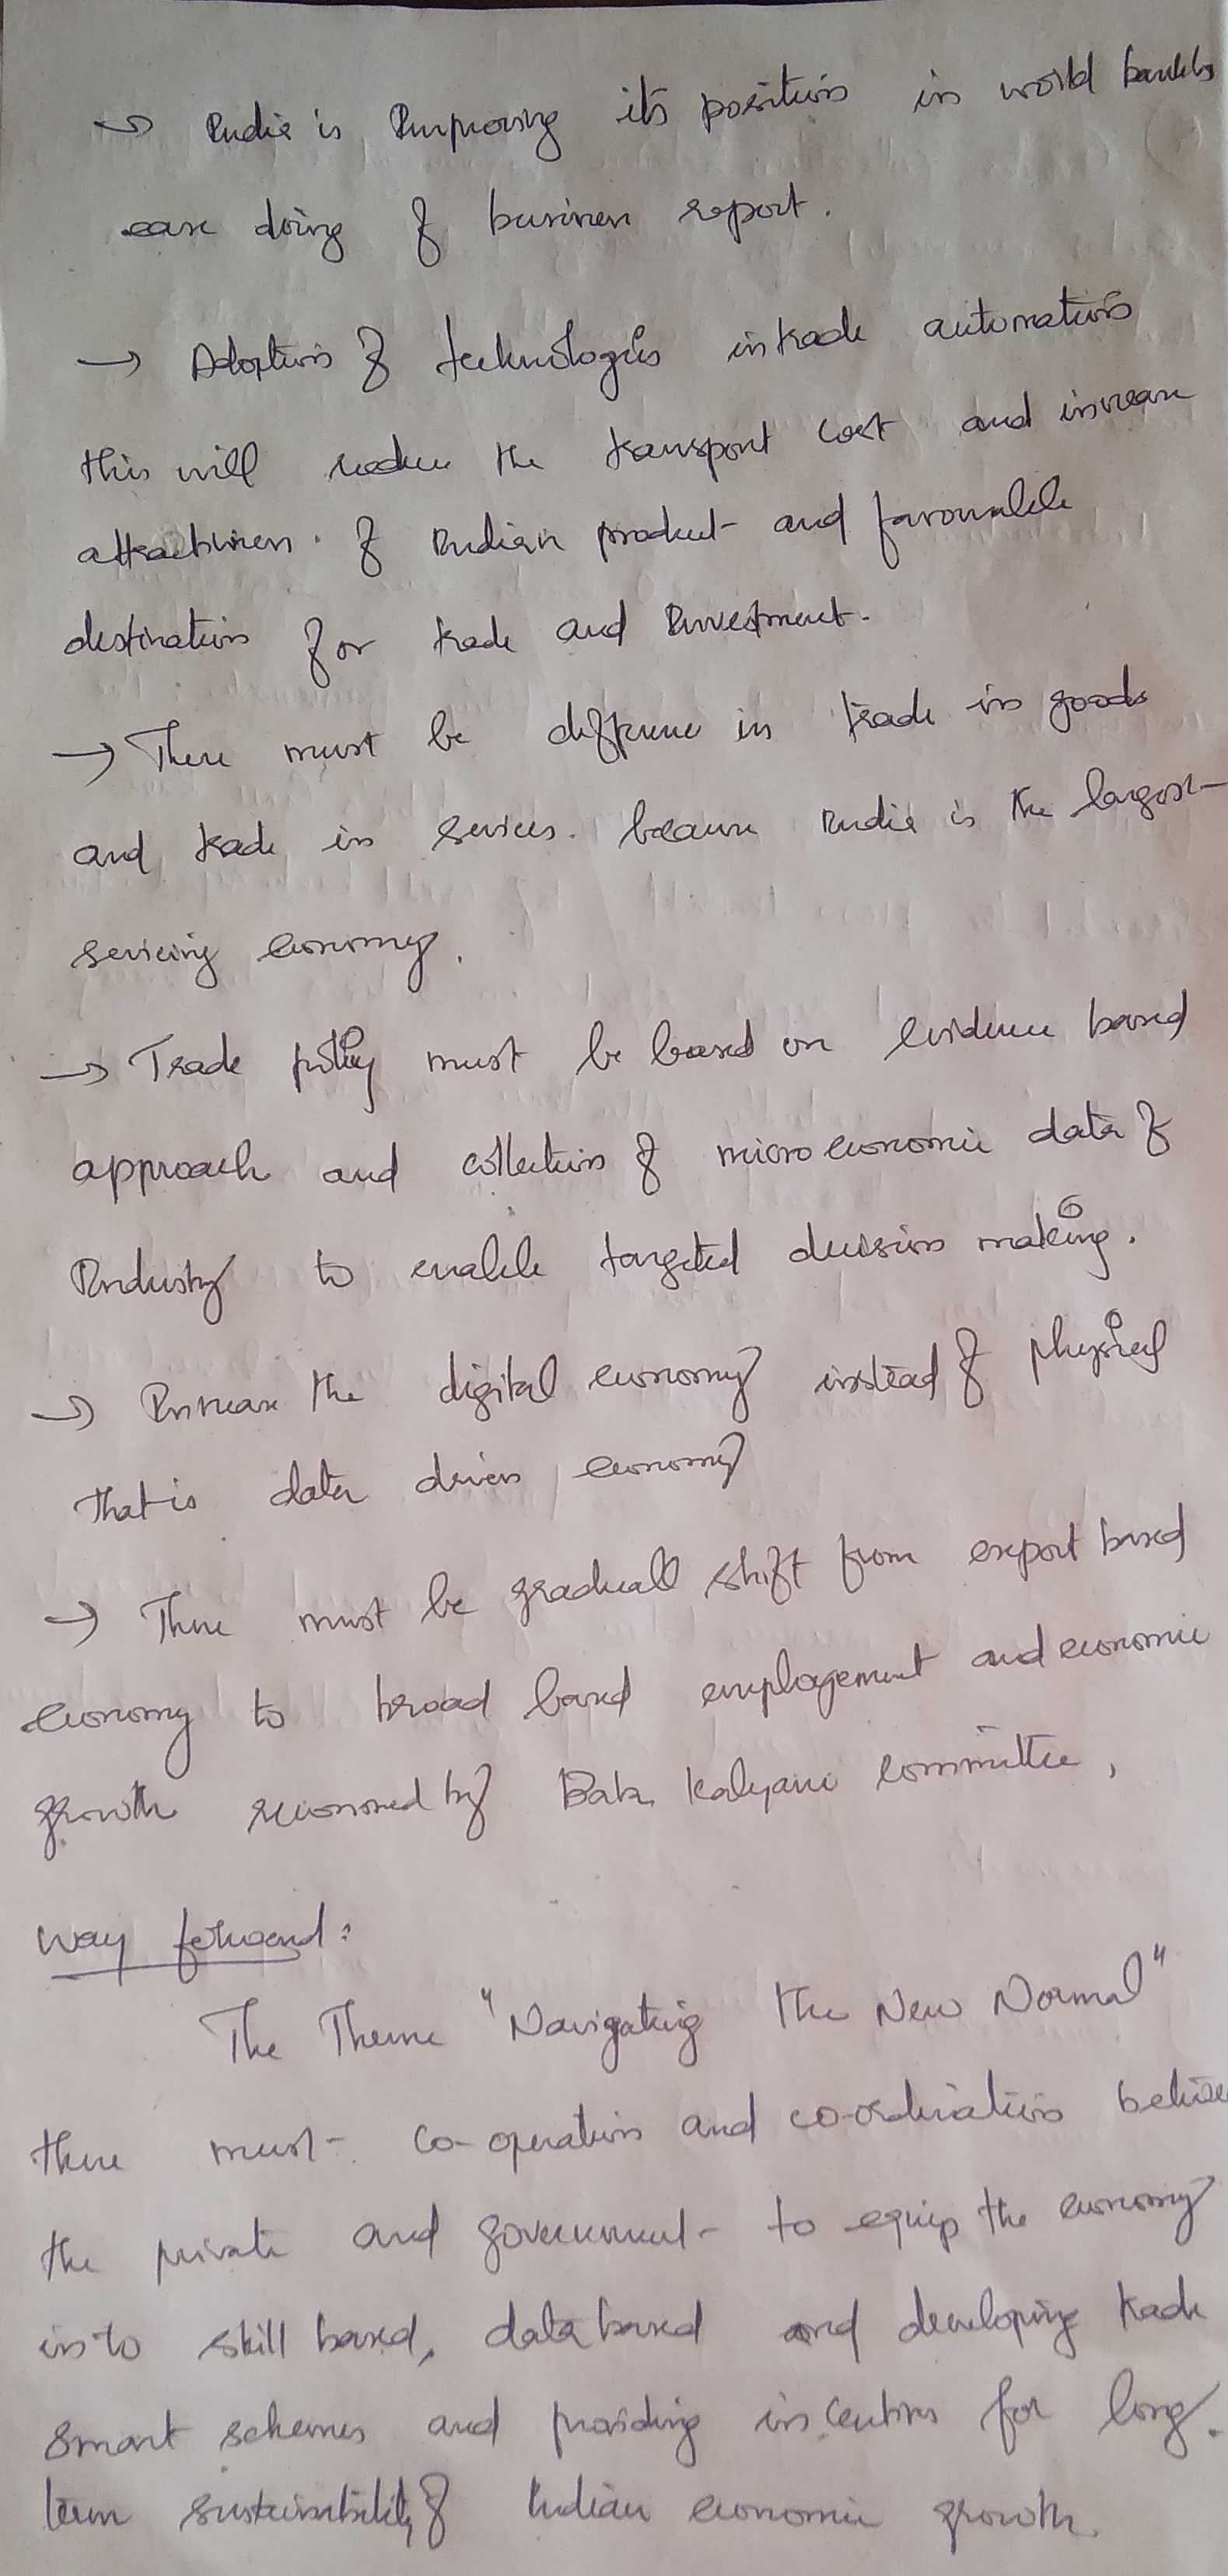 → India is Improving its position in world bank's
ease doing of business report.
→ Adoption of technologies in trade automation
this will reduce the transport cost and increase
attractiveness of Indian product and favourable
destination for trade and Investment.
→ There must be difference in trade in goods
and trade in services. because India is the largest
servicing economy.
→ Trade policy must be based on evidence based
approach and collection of micro economic data of
Industry to enable targeted decision making.
→ Increase the digital economy instead of physical
that is data driven economy
→ There must be graduall shift from export based
economy to broad based employement and economic
growth by Baba Kalyani committee,
Way forward:
The Theme "Navigating the New Normal"
there must co-operation and co-ordination between
the private and government to equip the economy
into skill based, data based and developing trade
smart schemes and providing incentives for long
term sustainability of Indian economic growth.